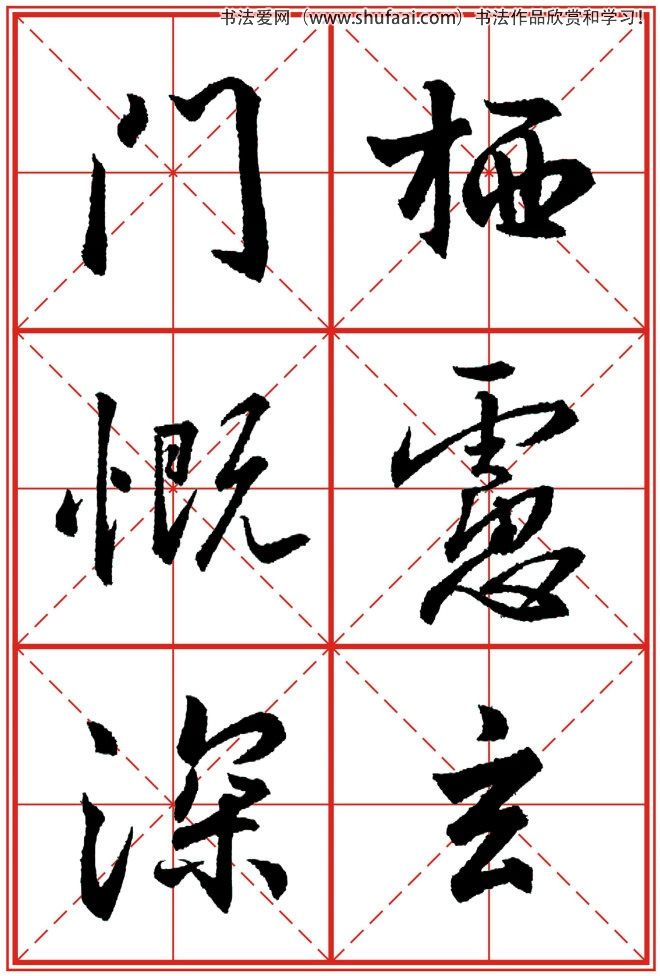 书法爱网（www.shufaai.com）书法作品欣赏和学习！
栖慮玄
门慨深